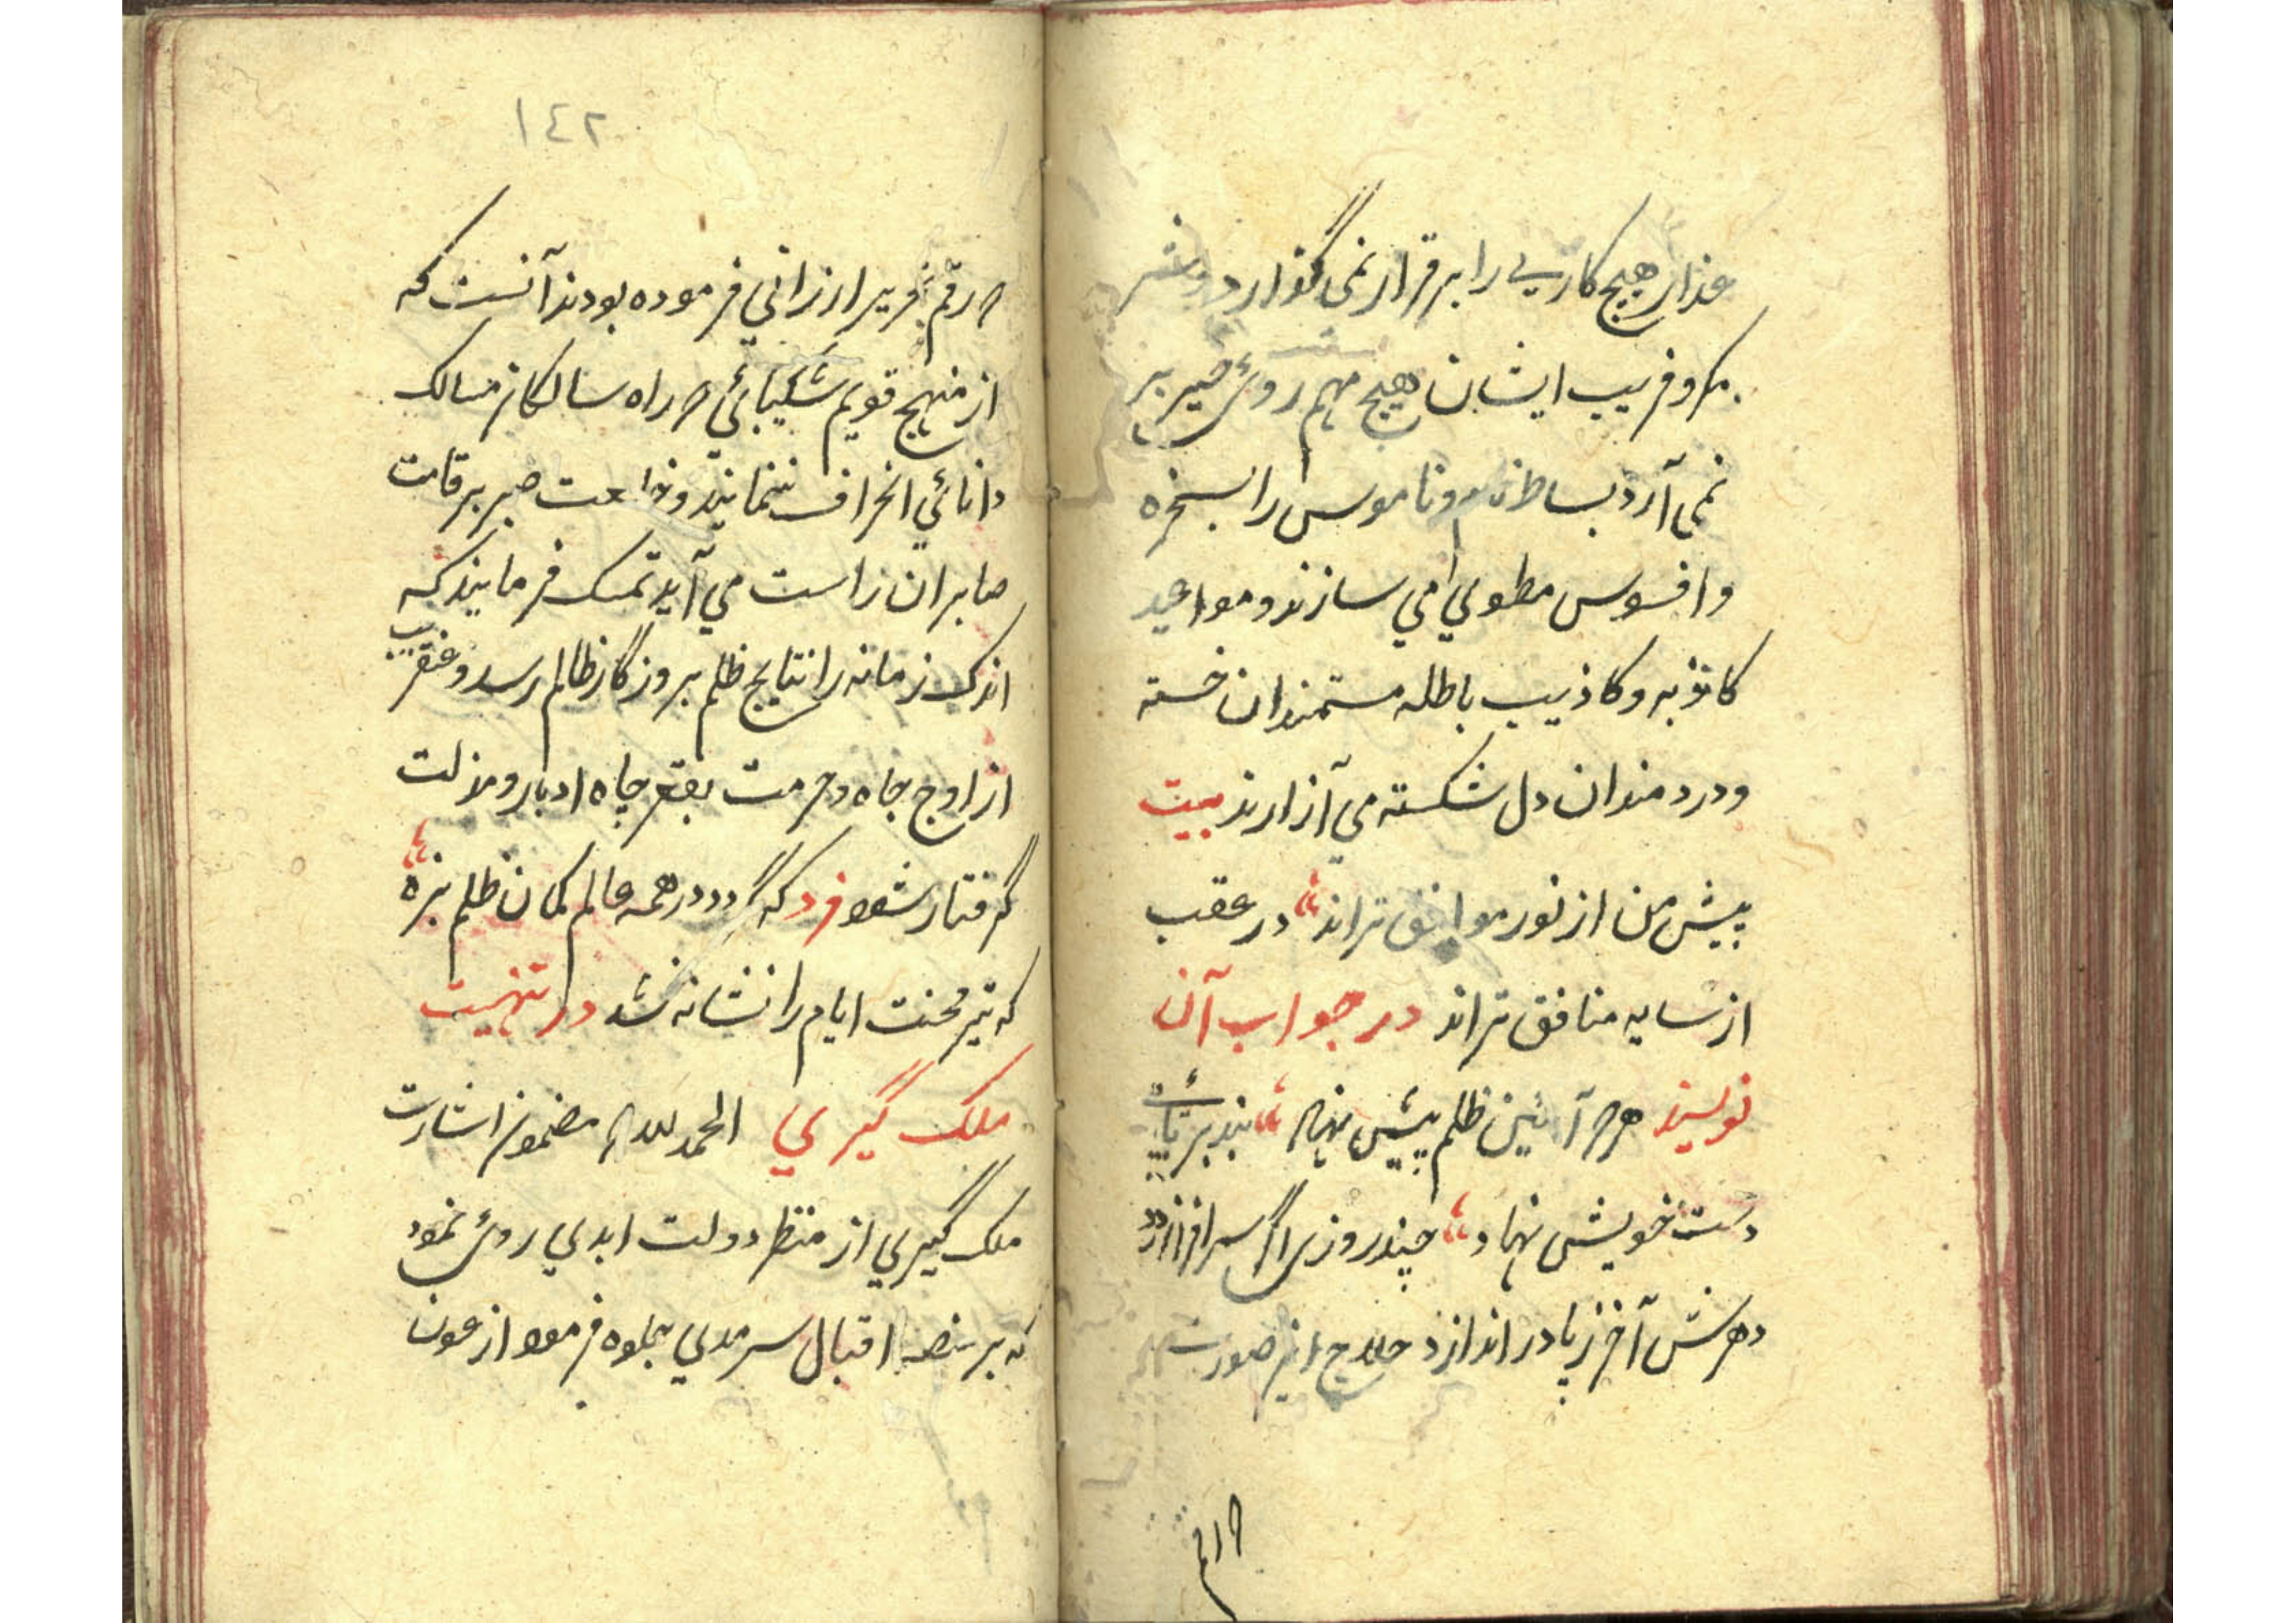 عذار هیچ کاریی را بر قرار نمی گذارد و شر
مکر و فریب ایشان هیچ مهم روی خیر بر
نمی آرد بساط نام و ناموس را بسخره
و افسوس مطوی می سازند و مواعید
کاذبه و کاذیب باطله مستمندان خسته
و دردمندان دل شکسته می آزارند بیت
پیش من از نور موافق تراند در عقب
از سایه منافق تراند در جواب آن
نویسند هر که آئین ظلم پیش نهاد بند بر پای
دست خویش نهاد چند روزی اگر سر افرازد
دهرش آخر ز پا در اندازد علاج این صورت
که رقم
١٤٢
که رقم ارزانی فرموده بودند آنست که
از منهج قویم شکیبائی که راه سالکان مسالک
دانائی انحراف ننمایند و خلعت صبر بر قامت
صابران راست می آید تمسک فرمایند که
اندک زمانه را نتایج ظلم بروزگار ظالم رسد و عنقریب
از اوج جاه و حرمت بقعر چاه ادبار و مذلت
گرفتار شود فرد که گردد در همه عالم کمان ظلم بزه
که تیر محنت ایام را نشانه نشد در تهنیت
ملک گیری الحمد لله که مضمون اشارت
ملک گیری از منظر دولت ابدی روی نمود
که بر منصه اقبال سرمدی جلوه فرمود از عون